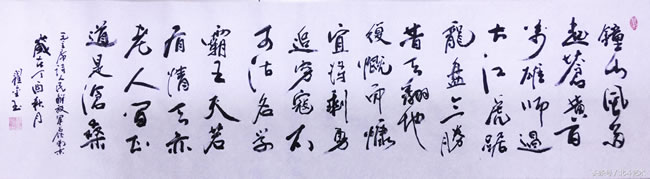 鐘山風雨
起蒼黃百
万雄師過
大江虎踞
龍盘今勝
昔天翻地
復慨而慷
宜将剩勇
追穷寇不
可沽名学
霸王天若
有情天亦
老人间正
道是滄桑
毛主席诗人民解放军占领南京
歲在丁酉秋月